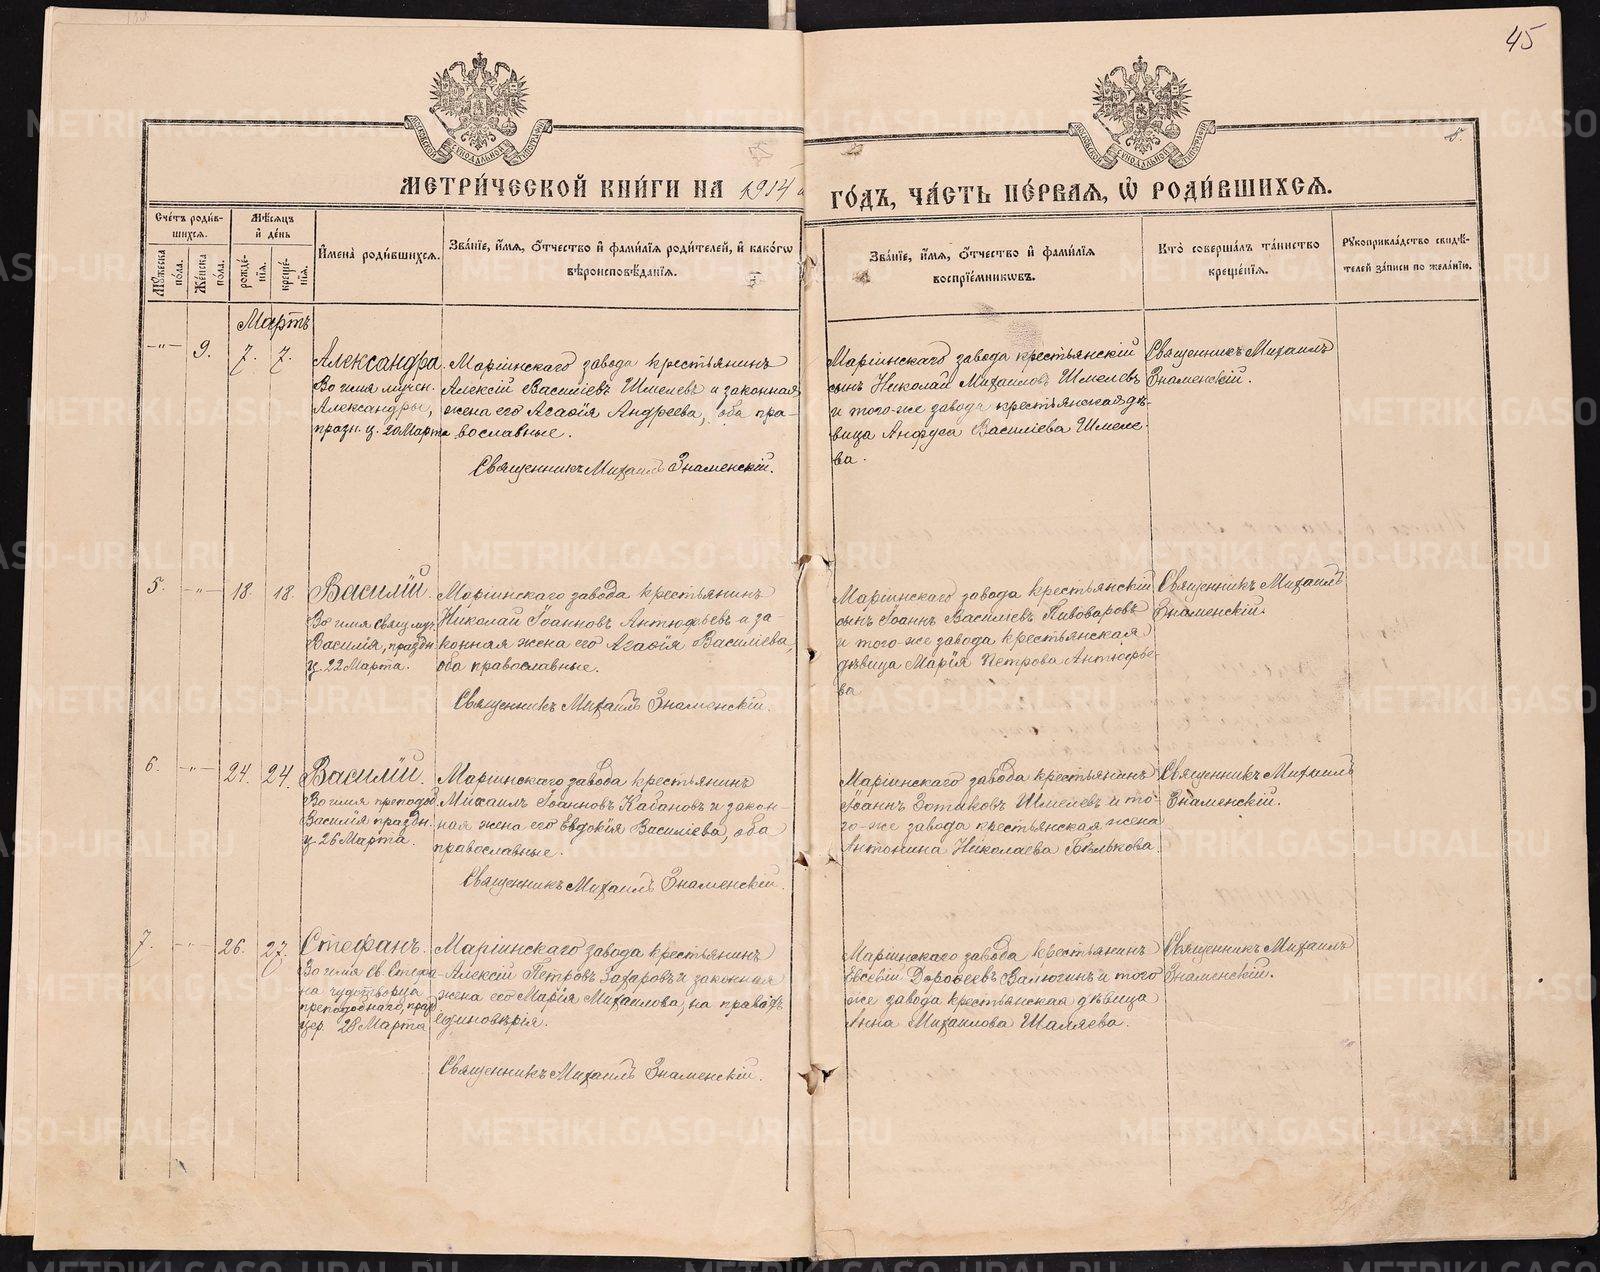 45
8.
МОСКОВСКОЙ СѴНОДАЛЬНОЙ ТИПОГРАФІИ
МОСКОВСКОЙ СѴНОДАЛЬНОЙ ТИПОГРАФІИ
МЕТРИ́ЧЕСКОЙ КНИ́ГИ НА 1914 й ГО́ДЪ, ЧА́СТЬ ПЕ́РВАЯ, Ѡ҆ РОДИ́ВШИХСЯ.
Сче́тъ роди́в-
шихся.
Му́жеска
по́ла.
Же́нска
по́ла.
Мѣ́сяцъ
и҆ де́нь
рожде́-
нїя.
креще́-
нїя.
И҆мена̀ роди́вшихся.
Зва́нїе, и҆́мя, ѻ҆́тчество и҆ фами́лїя роди́телей, и҆ како́гѡ
вѣроисповѣ́данїя.
Зва́нїе, и҆́мя, ѻ҆́тчество и҆ фами́лїя
воспрїе́мникѡвъ.
Кто̀ соверша́лъ та́инство
креще́нїя.
Рꙋкоприкла́дство свидѣ́-
телей за́писи по жела́нїю.
Мартъ
-"- 9. 7. 7.
Александра.
Во имя мучен.
Александры,
празн. ц. 20 Марта
Маріинскаго завода крестьянинъ
Алексій Василіевъ Шмелевъ и законная
жена его Агафія Андреева, оба пра-
вославные.
Священникъ Михаилъ Знаменскій.
Маріинскаго завода крестьянскій
сынъ Николай Михаиловъ Шмелевъ
и того-же завода крестьянская дѣ-
вица Анфуса Василіева Шмеле-
ва.
Священникъ Михаилъ
Знаменскій.
5. -"- 18. 18.
Василій.
Во имя свящмуч.
Василія, праздн.
ц. 22 Марта.
Маріинскаго завода крестьянинъ
Николай Іоанновъ Антюфьевъ и за-
конная жена его Агафія Василіева,
оба православные.
Священникъ Михаилъ Знаменскій.
Маріинскаго завода крестьянскій
сынъ Іоаннъ Василіевъ Пивоваровъ
и того же завода крестьянская
дѣвица Марія Петрова Антюфье-
ва
Священникъ Михаилъ
Знаменскій.
6. -"- 24. 24.
Василій.
Во имя преподоб.
Василія праздн.
ц. 26 Марта.
Маріинскаго завода крестьянинъ
Михаилъ Іоанновъ Кабановъ и закон-
ная жена его Евдокія Василіева, оба
православные.
Священникъ Михаилъ Знаменскій.
Маріинскаго завода крестьянинъ
Іоаннъ Зотиковъ Шмелевъ и то-
го-же завода крестьянская жена
Антонина Николаева Бѣлькова
Священникъ Михаилъ
Знаменскій.
7. -"- 26. 27.
Стефанъ.
Во имя Св. Стефа-
на чудотворца
преподобнаго, праз.
цер. 28 Марта
Маріинскаго завода крестьянинъ
Алексій Петровъ Захаровъ и законная
жена его Марія Михаилова, на правахъ
единовѣрія.
Священникъ Михаилъ Знаменскій.
Маріинскаго завода крестьянинъ
Евсевій Дорофеевъ Валюгинъ и того
же завода крестьянская дѣвица
Анна Михаилова Шаляева.
Священникъ Михаилъ
Знаменскій.
METRIKI.GASO-URAL.RU